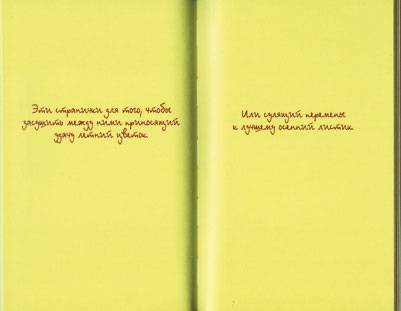 Эти странички для того, чтобы
засушить между ними приносящий
удачу летний цветок
Или сулящий перемены
к лучшему осенний листик